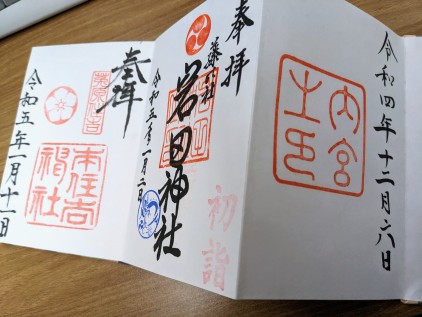 令和四年十二月六日
内宮
之印
奉拝
岩田神社
令和五年一月二日
初詣
奉拝
本住吉
神社
令和五年一月十一日